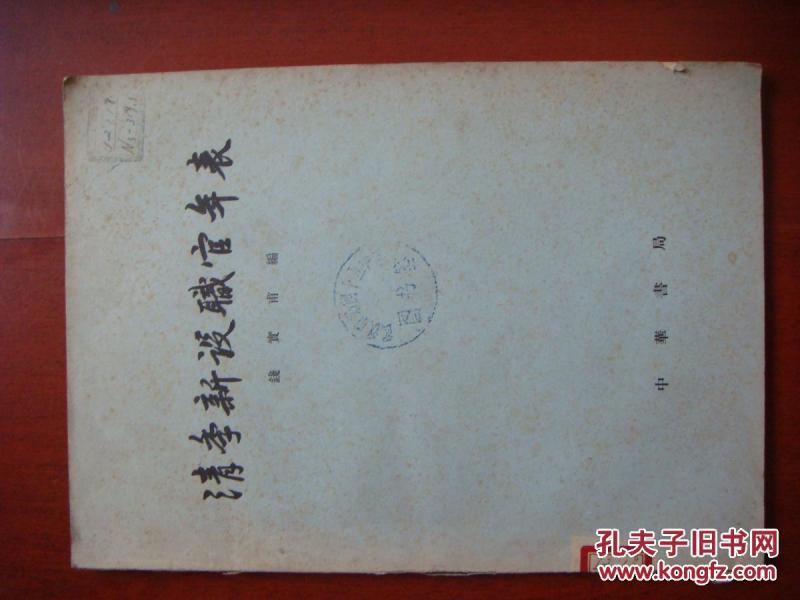 清季新設職官年表
錢實甫編
中華書局
图书室
孔夫子旧书网
www.kongfz.com